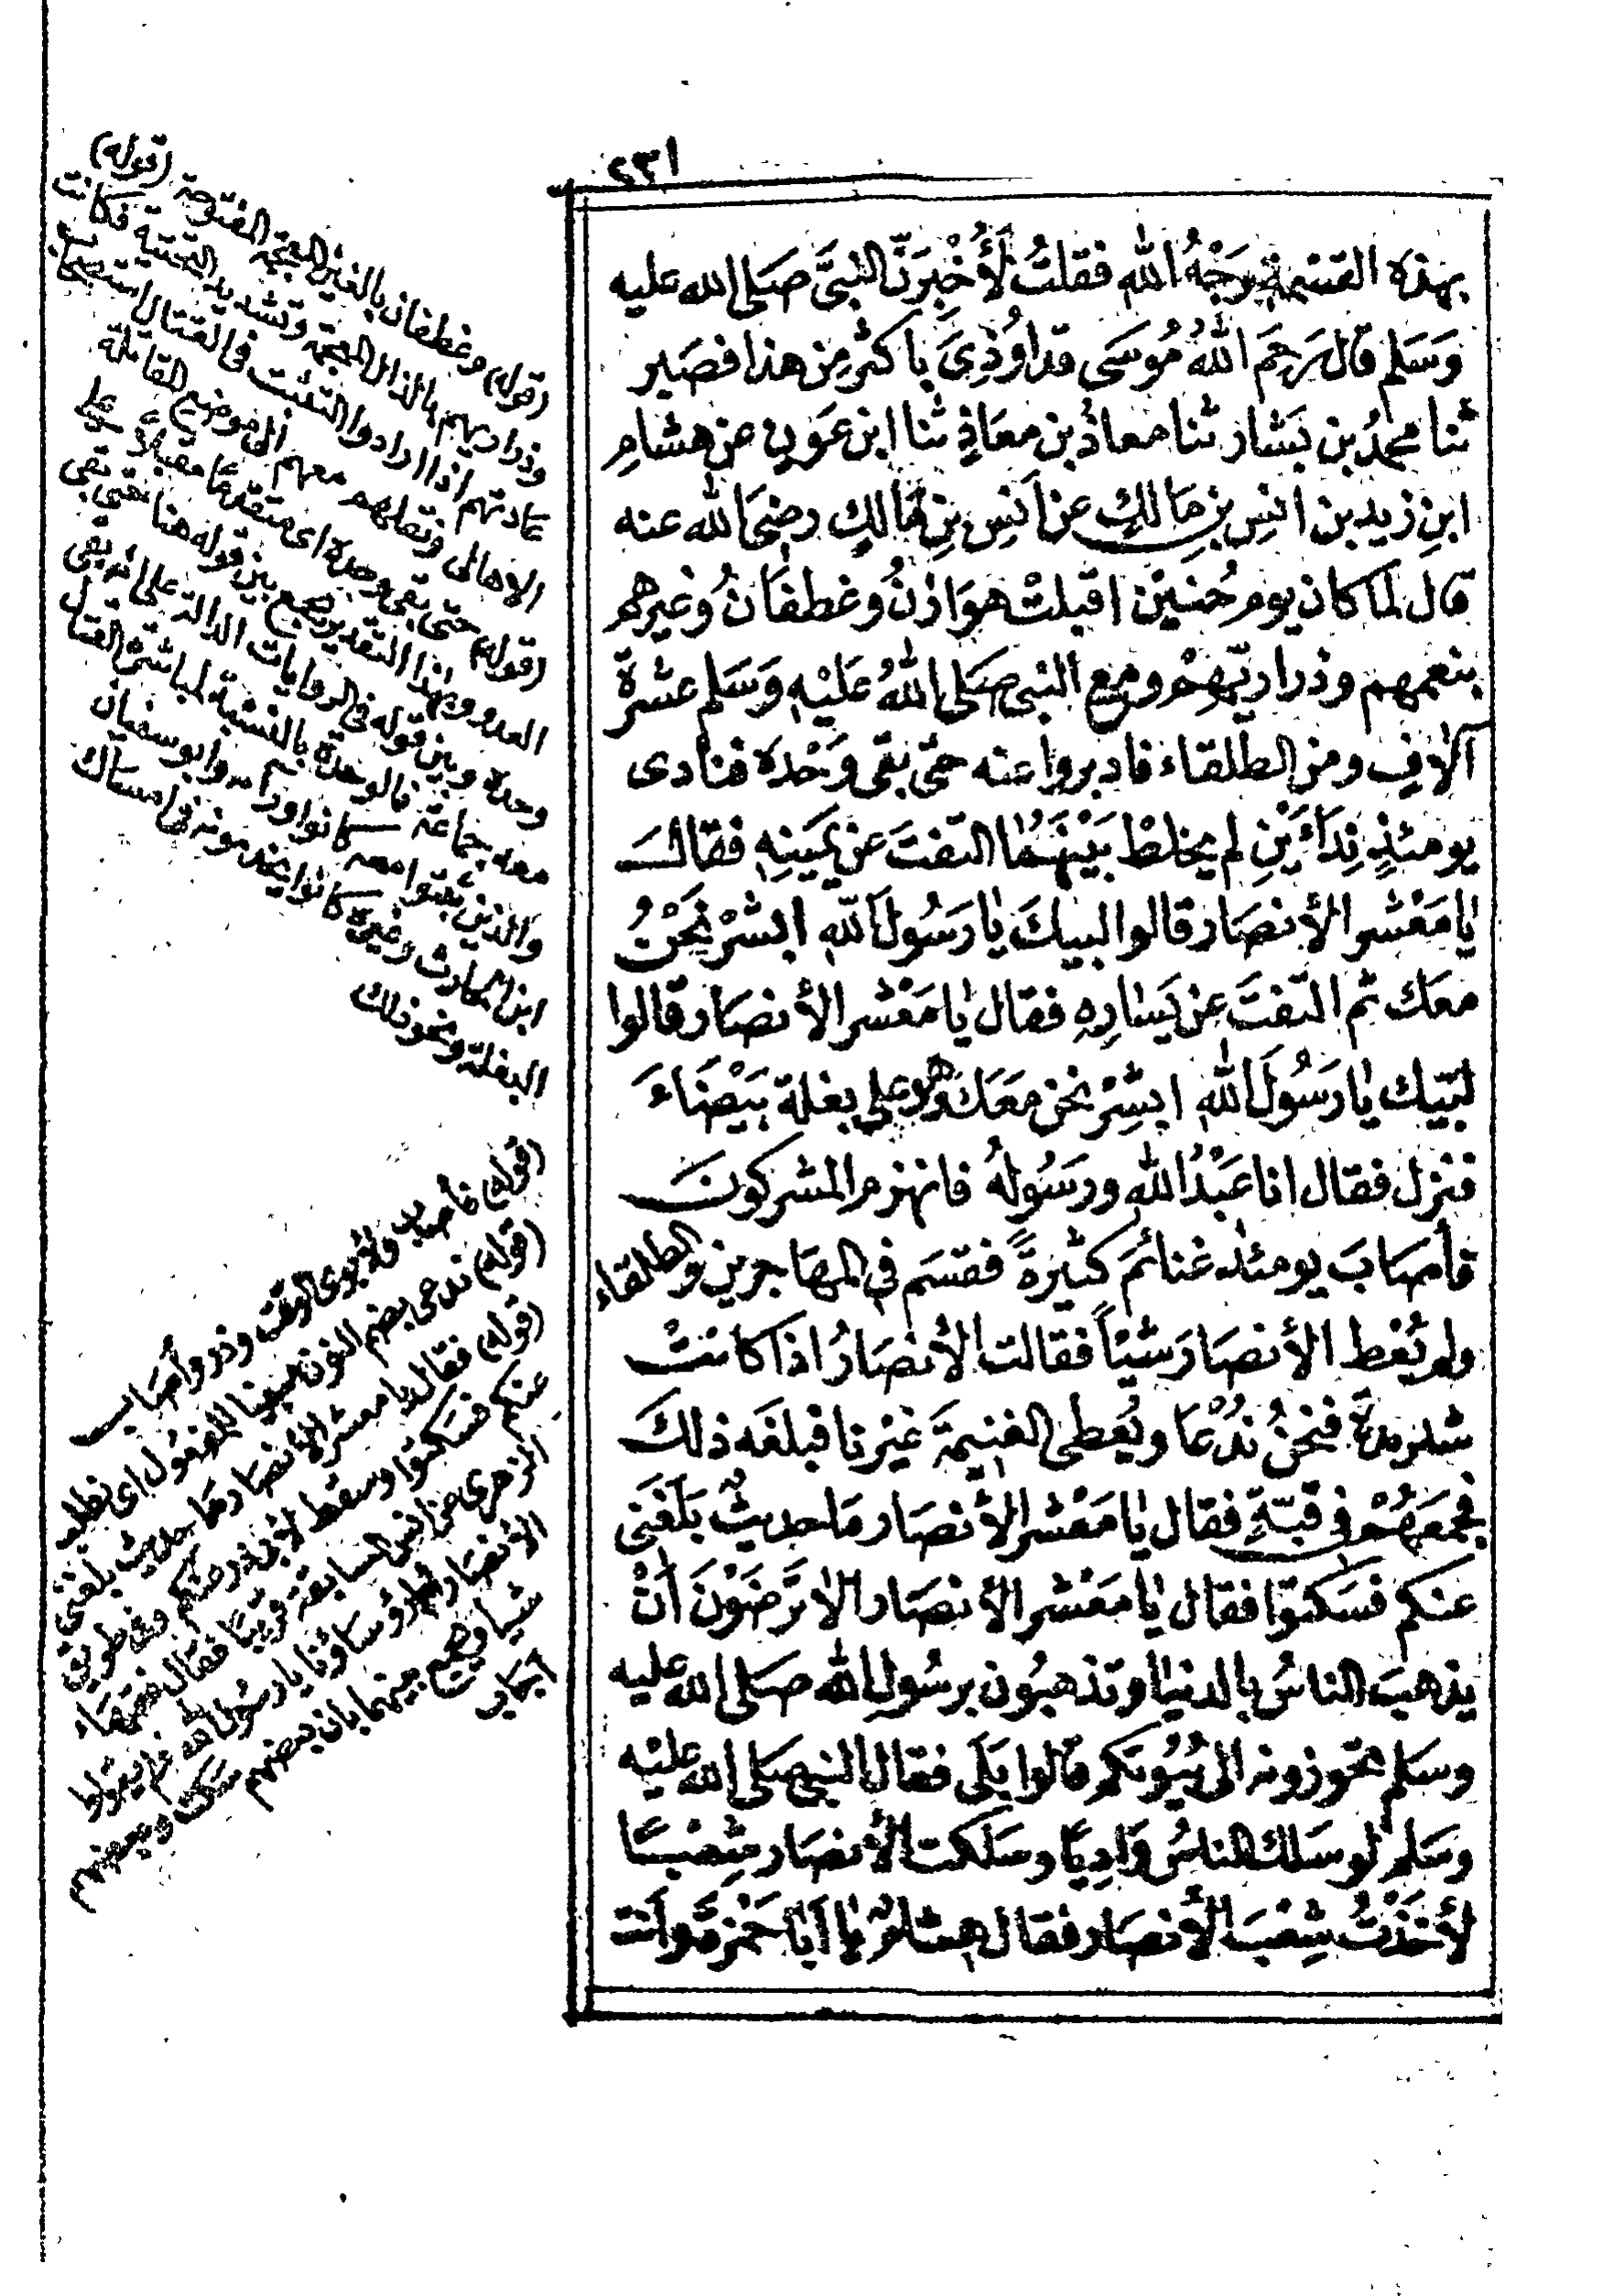 ٢٣١
بهذه القسمة وَجْهُ الله فقلتُ لَأُخْبِرَنَّ النبىَّ صَلى الله عليه
وَسَلم قال رَحِمَ اللهُ مُوسَى قد اُوْذِىَ باكثر مِن هذا فصَبر
ثنا محمدُ بن بَشار ثنا معاذُ بن معَاذٍ ثنا ابن عَونٍ عن هشامِ
ابنِ زيد بن انسِ بن مَالكٍ عن اَنسِ بنِ مَالكٍ رضىَ الله عنه
قال لما كان يوم حُنَيْن اقبلتْ هوَازنُ وغطفَانُ وغيرهم
بنعمهم وذراريّهِمْ ومع النبى صَلى اللهُ عَلَيْهِ وَسَلم عشرةُ
آلافٍ ومن الطلقاء فادبروا عنه حتّى بقى وَحْدَه فنادى
يومئذٍ نِدَاءَيْنِ لم يخلطْ بَيْنَهُمَا التفتَ عن يَمينهِ فقالــ
يَا مَعْشر الأنصَار قالوا لبيكَ يَا رَسُولَ اللهِ ابشرْ نَحْنُ
معَك ثم التفتَ عن يَسَارهِ فقال يَا مَعْشر الأنصَار قالوا
لَبّيك يَا رَسُولَ الله ابشِرْ نحن مَعَكَ وَهو على بغلة بَيْضَاءَ
فنزل فقال انا عَبْدُ الله ورَسُولهُ فانهزم المشركونَ
فأصَابَ يومئذ غنائمَ كثيرةً فقسَم فى المهَاجرين والطلقاء
ولم يُعْط الأنصَارَ شيْأً فقالت الأنصَارُ اذا كانتْ
شديدة فنحنُ نُدْعَا ويُعَطى الغنيمَةَ غيْرنا فبلغَه ذلكَ
فجمعَهُمْ فى قبّةٍ فقال يَا مَعْشر الأنصَار مَا حديثٌ بَلَغَنى
عنكم فسَكتوا فقال يَا مَعْشر الأنصَار الا تَرضَوْنَ اَنْ
يذهبَ الناسُ بالدنيَا وتذهبُون برسُول الله صَلى الله عليه
وسَلم تحوزونه الى بُيُوتكم قالوا بَلَى فقال النبى صَلى الله عليْه
وسَلم لو سَلك الناسُ وَادِيًا وسَلكت الأنصَار شِعْبًا
لأخَذْتُ شِعْبَ الأنصَار فقال هشامٌ يَا اَبَا حَمْزَة وَانت
(قوله) وغطفان بالغين المعجمة المفتوحة (قوله)
وذراريهم بالذال المعجمة وتشديد التحتية فكانت
عادتهم اذا ارادوا التثبت فى القتال استصحاب
الاهالى ونقلهم معهم الى موضع المقاتلة
(قوله) حتى بقى وحده اى متقدمًا مقبلًا على
العدو وبهذا التقدير يجمع بين قوله هنا حتى بقى
وحده وبين قوله فى الروايات الدالة على انه بقى
معه جماعة فالوحدة بالنسبة لمباشرة القتال
والذين ثبتوا معه كانوا وراءه وابو سفيان
ابن الحارث وغيره كانوا يخدمونه فى امساك
البغلة ونحو ذلك
(قوله) فأصاب ولأبوى الوقت وذر وأصاب
(قوله) ندعى بضم النون مبنيا للمفعول اى نطلب
(قوله) فقال يا معشر الأنصار ما حديث بلغنى
عنكم فسكتوا وسقط لأبى ذر عنكم وفى طريق
الزهرى عن انس السابقة قريبًا فقال فقهاء
الأنصار اما رؤساؤنا يا رسول الله فلم يقولوا
شيأ وجمع بينهما بان بعضهم سكت وبعضهم
اجاب